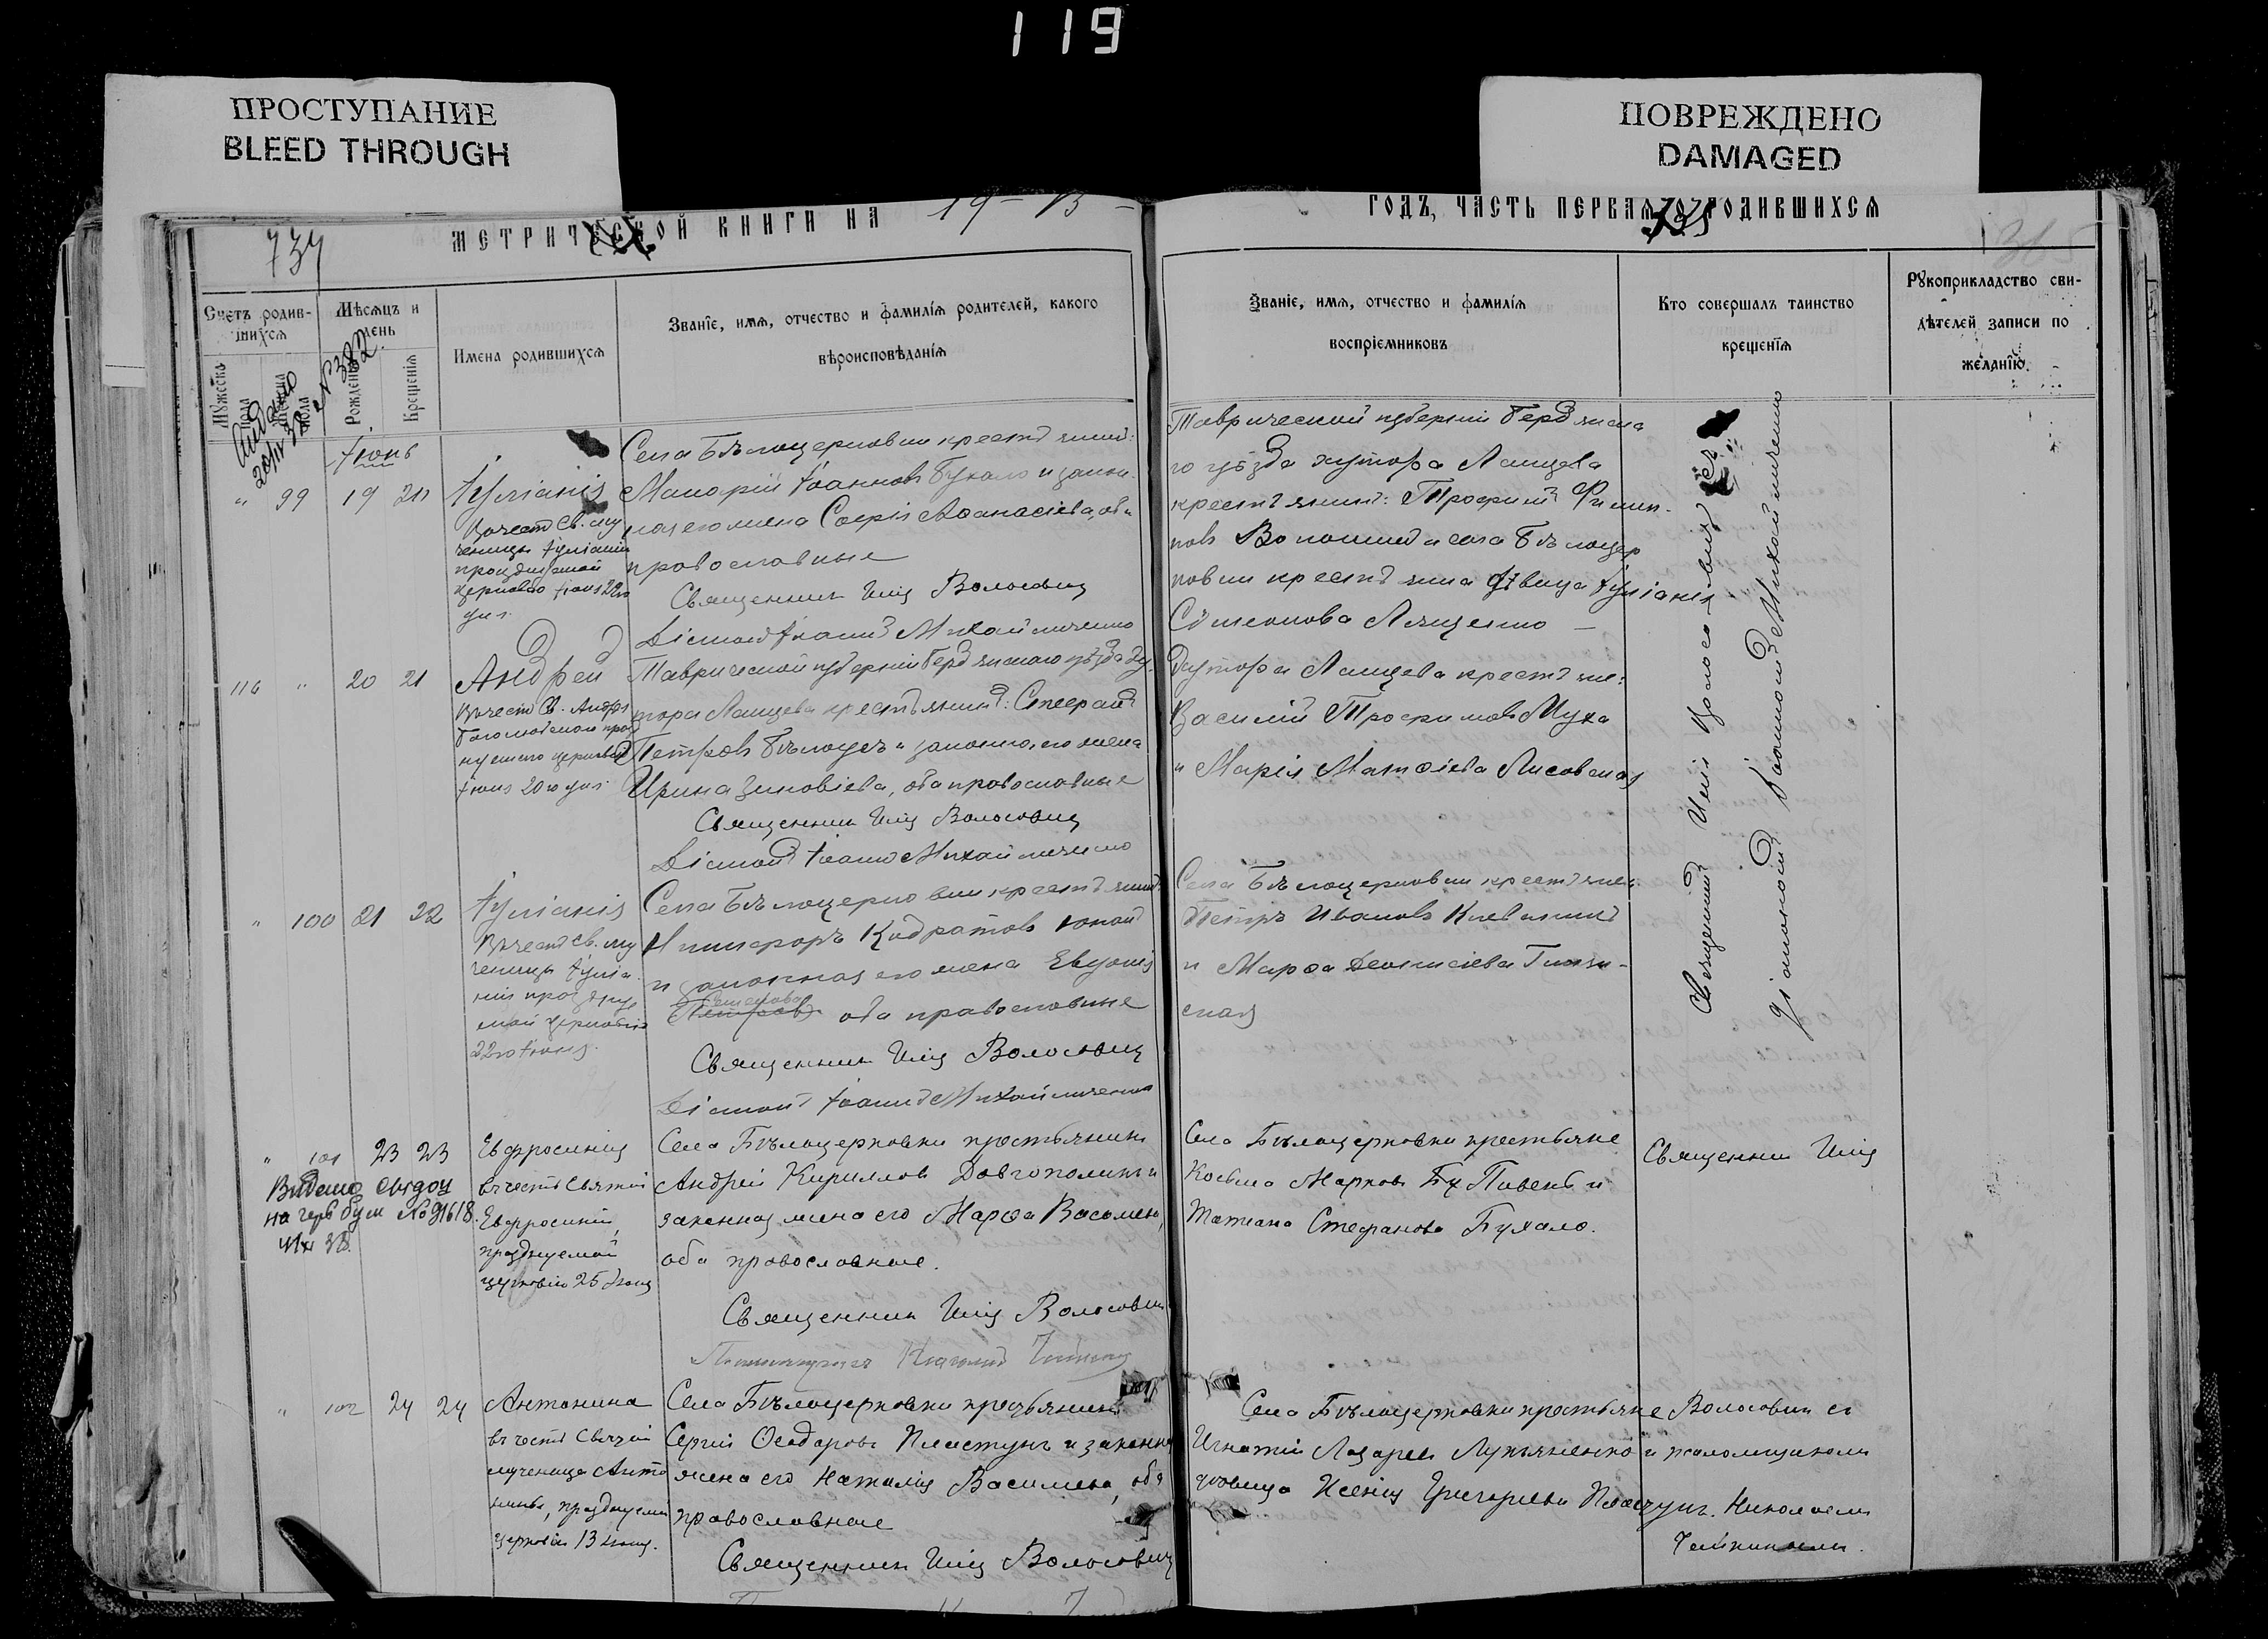 119
ПРОСТУПАНИЕ
BLEED THROUGH
ПОВРЕЖДЕНО
DAMAGED
734
МЕТРИЧЕСКОЙ КНИГИ НА 19-13-
ГОДЪ, ЧАСТЬ ПЕРВАЯ О РОДИВШИХСЯ
Счетъ родив-
шихся
Мужеска
пола
Женска
пола
Мѣсяцъ и
день
Рожденія
Крещенія
Имена родившихся
Званіе, имя, отчество и фамилія родителей, какого
вѣроисповѣданія
Званіе, имя, отчество и фамилія
воспріемниковъ
Кто совершалъ таинство
крещенія
Рукоприкладство сви-
дѣтелей записи по
желанію.
№ 382
Іюнь
" 99 19 20
Іуліанія
Въ честь Св. му
ченицы Іуліаніи
празднуемой
церковію Іюня 22го
дня
Села Бѣлоцерковки крестьянинъ:
Макарій Іоанновъ Бухало и закон
ная его жена Софія Аѳанасіева, оба
православные
Священникъ Илія Волосовичъ
Діаконъ Іоаннъ Михайличенко
Таврической губерніи Бердянска
го уѣзда хутора Ланцева
крестьянинъ: Трофимъ Филип-
повъ и села Бѣлоцер
ковки крестьянка дѣвица Іуліанія
Сѵмеонова Лященко
116 " 20 21
Андрей
Въ честь Св. Андрея
Боголюбскаго празд
нуемаго церковію
Іюня 20го дня
Таврической губерніи Бердянскаго уѣзда ху-
тора Ланцева крестьянинъ: Стефанъ
Петровъ Бѣлоусъ и законная его жена
Ирина Зиновіева, оба православные
Священникъ Илія Волосовичъ
Діаконъ Іоаннъ Михайличенко
Хутора Ланцева крестьяне:
Василій Трофимовъ Муха
и Марія Матѳіева Лисовская
" 100 21 22
Іуліанія
Въ честь Св. му
ченицы Іуліа
ніи праздну
емой церковію
22го Іюня
Села Бѣлоцерковки крестьянинъ
Никифоръ Кодратовъ
и законная его жена Евдокія
Семенова оба православные
Священникъ Илія Волосовичъ
Діаконъ Іоаннъ Михайличенко
Села Бѣлоцерковки крестьяне:
Петръ Ивановъ
и Марѳа Деонисіева
ская
Священникъ Илія Волосовичъ съ
діакономъ Іоанномъ Михайличенко
" 101 23 23
на герб бум № 91618
Евфросинія
въ честь Святой
Евфросиніи,
празднуемой
церковію 25 Іюня
Села Бѣлоцерковки крестьянинъ
Андрей Кирилловъ Довгополикъ и
законная жена его Марѳа Васильева,
оба православные.
Священникъ Илія Волосовичъ
Псаломщикъ Николай
Села Бѣлоцерковки крестьяне
Косьма Марковъ Пивень и
Татіана Стефанова Бухало.
Священникъ Илія
" 102 24 24
Антонина
въ честь Святой
мученицы Анто
нины, празднуемой
церковію 13 Іюня.
Села Бѣлоцерковки крестьянинъ
Сергій Ѳеодоровъ Пластунъ и законная
жена его Наталія Васильева, оба
православные
Священникъ Илія Волосовичъ
Села Бѣлоцерковки крестьяне
Игнатій Лазаревъ Лукьяненко и
дѣвица Ксенія Григоріева Пластунъ.
Волосовичъ съ
псаломщикомъ
Николаемъ